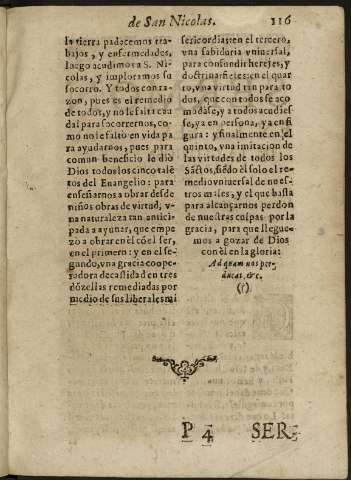 de San Nicolas. 116
la tierra padecemos tra-
bajos, y enfermedades,
luego acudimos a S. Ni-
colas, y imploramos su
socorro. Y todos con ra-
zon, pues es el remedio
de todos, y no le falta cau
dal para socorrernos, co-
mo no le faltò en vida pa
ra ayudarnos, pues para
comun beneficio le diò
Dios todos los cinco talē
tos del Evangelio: para
enseñarnos a obrar desde
niños obras de virtud, v-
na naturaleza tan antici-
pada a ayunar, que empe
zò a obrar en èl cō el ser,
en el primero: y en el se-
gundo, vna gracia coope
radora de castidad en tres
dōzellas remediadas por
medio de sus liberales mi
sericordias: en el tercero,
vna sabiduria vniversal,
para confundir herejes, y
doctrinar fieles: en el quar
to, vna virtud tan para to
dos, que con todos se aco
modasse, y a todos acudies
se, ya en persona, ya en fi
gura: y finalmente en el
quinto, vna imitacion de
las virtudes de todos los
Sāctos, siēdo èl solo el re
medio vniversal de nues-
tros males, y el que basta
para alcançarnos perdon
de nuestras culpas por la
gracia, para que llegue-
mos a gozar de Dios
con èl en la gloria:
Ad quam nos per-
ducat, &c.
(?)
P 4 SER-